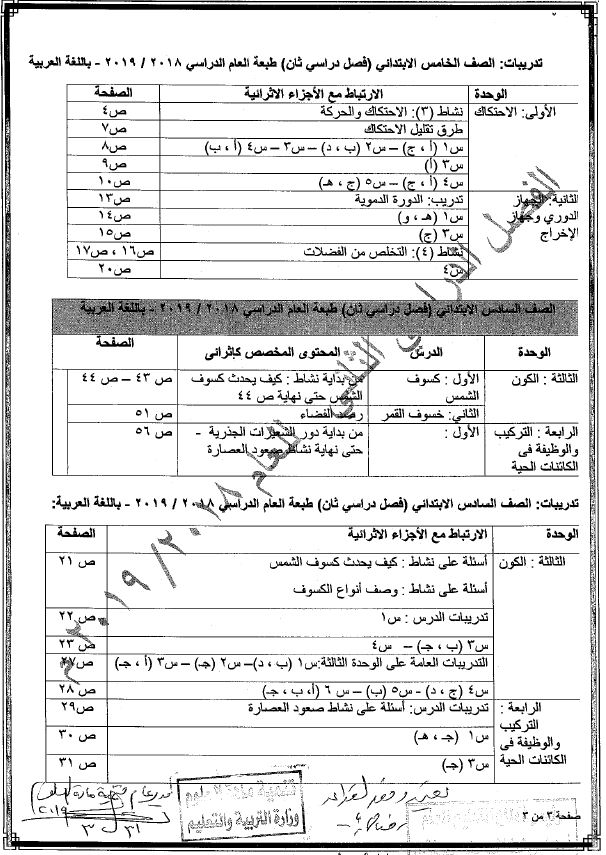 تدريبات: الصف الخامس الابتدائي (فصل دراسي ثان) طبعة العام الدراسي ٢٠١٨ / ٢٠١٩ - باللغة العربية
الوحدة الارتباط مع الأجزاء الاثرائية الصفحة
الأولى: الاحتكاك نشاط (٣): الاحتكاك والحركة ص٤
طرق تقليل الاحتكاك ص٧
س١ (أ ، ج) – س٢ (ب ، د) – س٣ – س٤ (أ ، ب) ص٨
س٣ (أ) ص٩
س٤ (أ ، ج) – س٥ (ج ، هـ) ص١٠
الثانية: الجهاز تدريب: الدورة الدموية ص١٣
الدوري وجهاز س١ (هـ ، و) ص١٤
الإخراج س٣ (ج) ص١٥
نشاط (٤): التخلص من الفضلات ص١٦ ، ص١٧
س٤ ص٢٠
الصف السادس الابتدائي (فصل دراسي ثان) طبعة العام الدراسي ٢٠١٨ / ٢٠١٩ - باللغة العربية
الوحدة الدرس المحتوى المخصص كإثرائى الصفحة
الثالثة : الكون الأول : كسوف من بداية نشاط : كيف يحدث كسوف ص ٤٣ – ص ٤٤
الشمس الشمس حتى نهاية ص ٤٤
الثاني: خسوف القمر رصد الفضاء ص ٥١
الرابعة : التركيب الأول : من بداية دور الشعيرات الجذرية - ص ٥٦
والوظيفة فى حتى نهاية نشاط صعود العصارة
الكائنات الحية
تدريبات: الصف السادس الابتدائي (فصل دراسي ثان) طبعة العام الدراسي ٢٠١٨ / ٢٠١٩ - باللغة العربية:
الوحدة الارتباط مع الأجزاء الاثرائية الصفحة
الثالثة : الكون أسئلة على نشاط : كيف يحدث كسوف الشمس ص ٢١
أسئلة على نشاط : وصف أنواع الكسوف
تدريبات الدرس : س١ ص ٢٢
س٣ (ب ، جـ) – س٤ ص ٢٣
التدريبات العامة على الوحدة الثالثة:س١ (ب ، د)– س٢ (جـ) – س٣ (أ ، جـ) ص٢٧
س٤ (ج ، د) - س٥ (ب) – س ٦ (أ، ب ، جـ) ص ٢٨
الرابعة : تدريبات الدرس: أسئلة على نشاط صعود العصارة ص٢٩
التركيب س١ (جـ ، هـ) ص ٣٠
والوظيفة فى
الكائنات الحية س٣ (جـ) ص ٣١
الفصل الدراسي الثاني للعام ٢٠١٨ / ٢٠١٩ م
تنمية مادة العلوم
وزارة التربية والتعليم
مدير عام تنمية مادة العلوم
٢٠١٩
صفحة ٣ من ٣